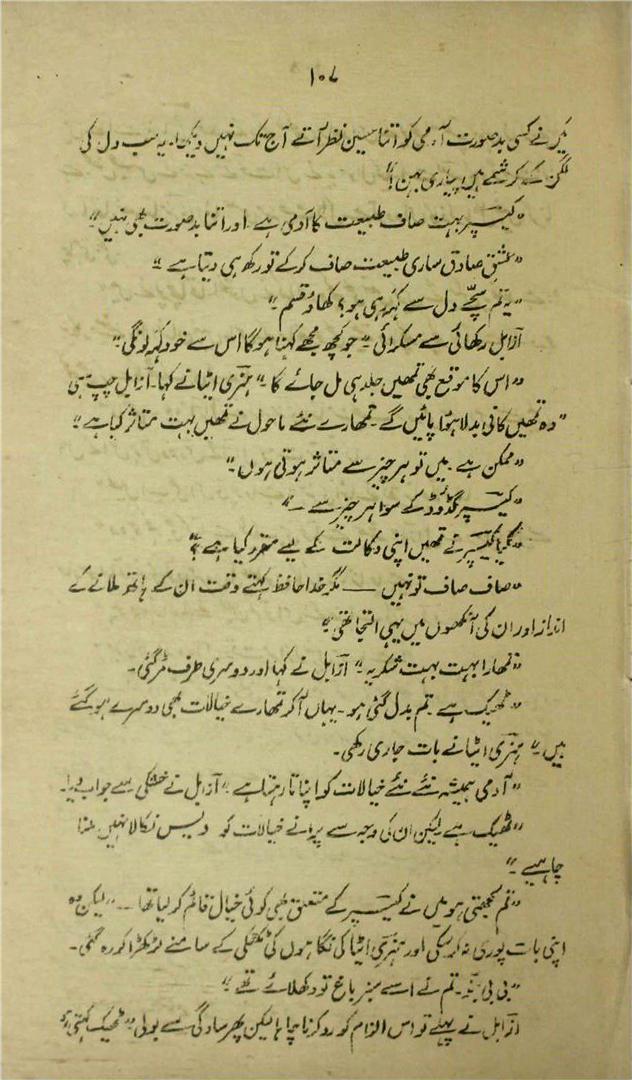 ۱۰۷
میں نے کسی بدصورت آدمی کو اتنا حسین نظر آتے آج تک نہیں دیکھا۔ یہ سب دل کی
لگن کے کرشمے ہیں، پیاری بہن!"
"کیسپر بہت صاف طبیعت کا آدمی ہے اور اتنا بدصورت بھی نہیں"
"عشقِ صادق ساری طبیعت صاف کر کے تو رکھ ہی دیتا ہے"
"یہ تم سچّے دل سے کہہ رہی ہو؟ کھاؤ قسم۔"
آزابل رکھائی سے مسکرائی "جو کچھ مجھے کہنا ہوگا اس سے خود کہہ لونگی"
"اس کا موقع بھی تمھیں جلد ہی مل جائے گا" ہنری اٹیا نے کہا۔ آزابل چپ رہی
"وہ تمھیں کافی بدلا ہوا پائیں گے۔ تمھارے نئے ماحول نے تمھیں بہت متاثر کیا ہے"
"ممکن ہے۔ میں تو ہر چیز سے متاثر ہوتی ہوں۔"
"کیسپر گڈوڈ کے سوا ہر چیز سے ــ"
"کیا کیسپر نے تمھیں اپنی وکالت کے لیے مقرر کیا ہے؟"
"صاف صاف تو نہیں ــــ مگر خدا حافظ کہتے وقت ان کے ہاتھ ملانے کے
انداز اور ان کی آنکھوں میں یہی التجا تھی"
"تمھارا بہت بہت شکریہ" آزابل نے کہا اور دوسری طرف مڑ گئی۔
"ٹھیک ہے۔ تم بدل گئی ہو۔ یہاں آ کر تمھارے خیالات بھی دوسرے ہو گئے
ہیں" ہنری اٹیا نے بات جاری رکھی۔
"آدمی ہمیشہ نئے نئے خیالات کو اپناتا رہتا ہے" آزابل نے خشکی سے جواب دیا۔
"ٹھیک ہے لیکن ان کی وجہ سے پرانے خیالات کو دیس نکالا نہیں ملنا
چاہیے۔"
"تم سمجھتی ہو میں نے کیسپر کے متعلق بھی کوئی خیال قائم کر لیا تھا ۔۔" لیکن وہ
اپنی بات پوری نہ کر سکی اور ہنری اٹیا کی نگاہوں کی ٹکٹکی کے سامنے لڑکھڑا کر رہ گئی۔
تم نے اسے سبز باغ تو دکھلائے تھے"
آزابل نے پہلے تو اس الزام کو رد کرنا چاہا لیکن پھر سادگی سے بولی "ٹھیک کہتی ہو